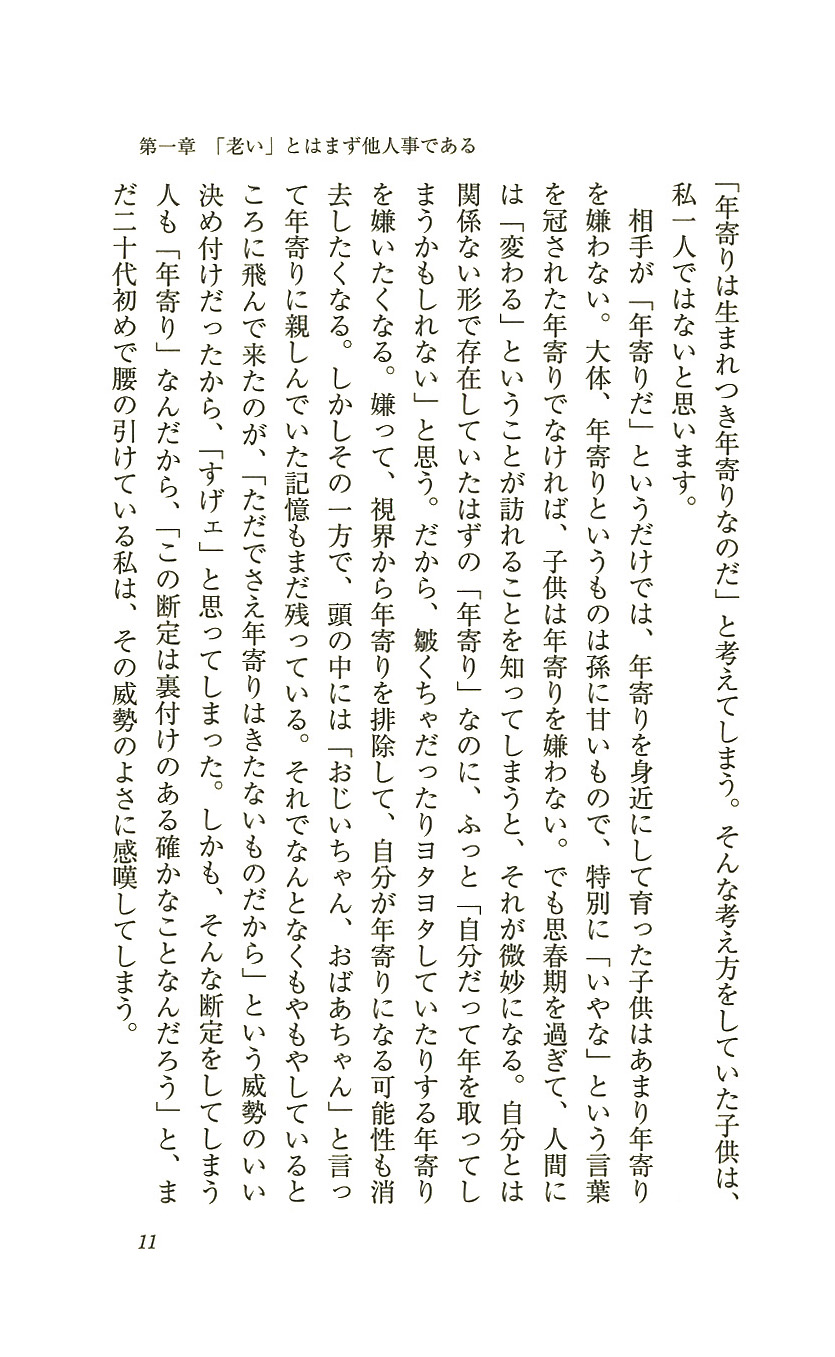 第一章　「老い」とはまず他人事である
「年寄りは生まれつき年寄りなのだ」と考えてしまう。そんな考え方をしていた子供は、
私一人ではないと思います。
　相手が「年寄りだ」というだけでは、年寄りを身近にして育った子供はあまり年寄り
を嫌わない。大体、年寄りというものは孫に甘いもので、特別に「いやな」という言葉
を冠された年寄りでなければ、子供は年寄りを嫌わない。でも思春期を過ぎて、人間に
は「変わる」ということが訪れることを知ってしまうと、それが微妙になる。自分とは
関係ない形で存在していたはずの「年寄り」なのに、ふっと「自分だって年を取ってし
まうかもしれない」と思う。だから、皺くちゃだったりヨタヨタしていたりする年寄り
を嫌いたくなる。嫌って、視界から年寄りを排除して、自分が年寄りになる可能性も消
去したくなる。しかしその一方で、頭の中には「おじいちゃん、おばあちゃん」と言っ
て年寄りに親しんでいた記憶もまだ残っている。それでなんとなくもやもやしていると
ころに飛んで来たのが、「ただでさえ年寄りはきたないものだから」という威勢のいい
決め付けだったから、「すげェ」と思ってしまった。しかも、そんな断定をしてしまう
人も「年寄り」なんだから、「この断定は裏付けのある確かなことなんだろう」と、ま
だ二十代初めで腰の引けている私は、その威勢のよさに感嘆してしまう。
11